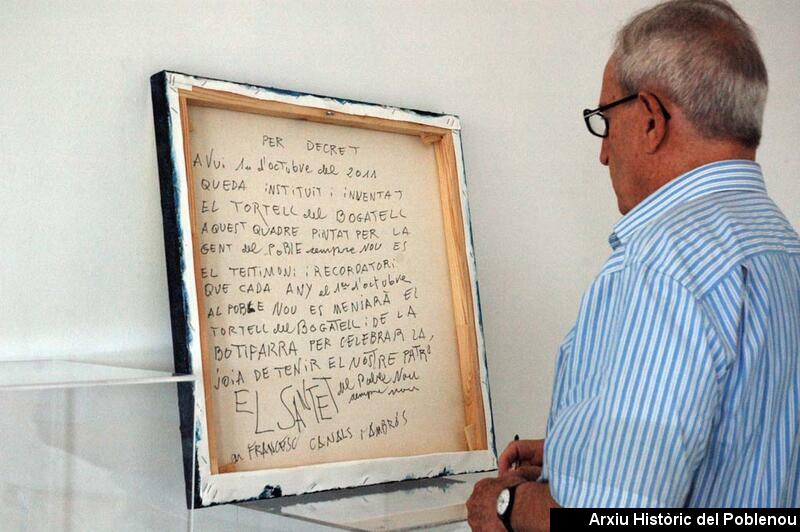 PER DECRET
AVUI 1er d'OCTUBRE del 2011
QUEDA INSTITUIT i INVENTAT
EL TORTELL del BOGATELL
AQUEST QUADRE PINTAT PER LA
GENT del POBLE sempre NOU ES
EL TESTIMONI i RECORDATORI
QUE CADA ANY el 1er d'octubre
AL POBLE NOU ES MENJARÀ EL
TORTELL del BOGATELL i DE LA
BOTIFARRA PER CELEBRAR LA
JOIA DE TENIR EL NOSTRE PATRÓ
EL SANTET del Poble Nou
sempre nou
FRANCESC CANALS i AMBRÓS
Arxiu Històric del Poblenou